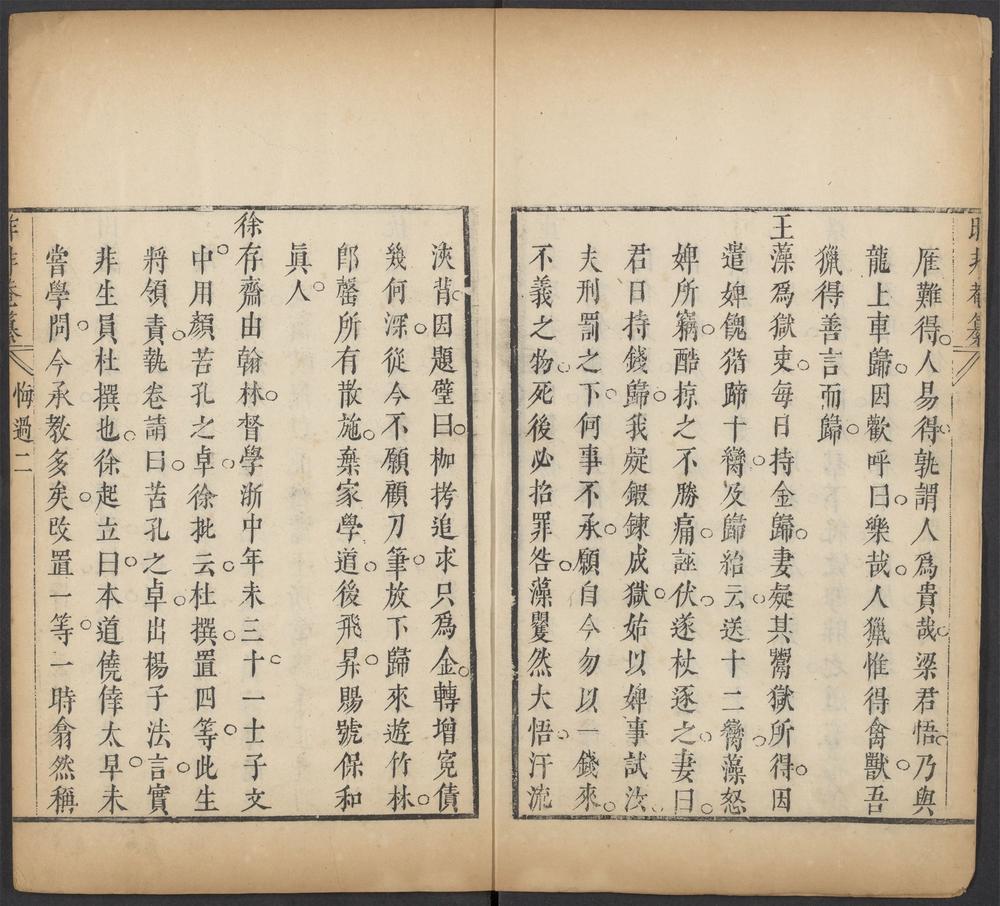 雁難得人易得孰謂人爲貴哉梁君悟乃與
龍上車歸因歡呼曰樂哉人獵惟得禽獸吾
獵得善言而歸
王藻爲獄吏每日持金歸妻疑其鬻獄所得因
遣婢餽猪蹄十臠及歸紿云送十二臠藻怒
婢所竊酷掠之不勝痛誣伏遂杖逐之妻曰
君日持錢歸我疑鍜鍊成獄姑以婢事試汝
夫刑罰之下何事不承願自今勿以一錢來
不義之物死後必招罪咎藻矍然大悟汗流
浹背因題壁曰枷拷追求只爲金轉增寃債
幾何深從今不願顧刀筆放下歸來遊竹林
卽罄所有散施棄家學道後飛昇賜號保和
眞人
徐存齋由翰林督學浙中年未三十一士子文
中用顏苦孔之卓徐批云杜撰置四等此生
將領責執卷請曰苦孔之卓出楊子法言實
非生員杜撰也徐起立曰本道僥倖太早未
嘗學問今承教多矣改置一等一時翕然稱
昨非菴纂 悔過 二